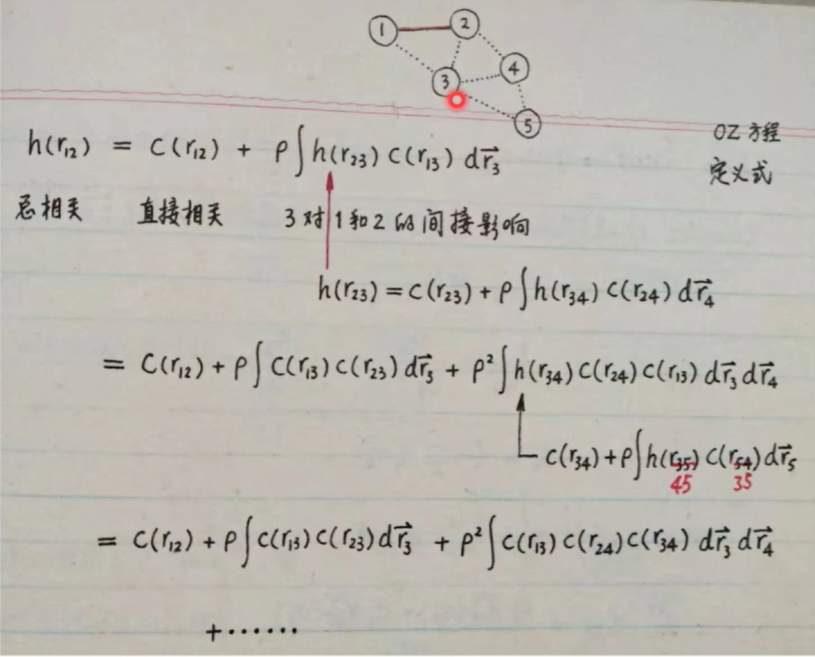 ① ② ③ ④ ⑤
h(r₁₂) = c(r₁₂) + ρ∫h(r₂₃)c(r₁₃)dr⃗₃ OZ方程
总相关 直接相关 3对1和2的间接影响 定义式
h(r₂₃) = c(r₂₃) + ρ∫h(r₃₄)c(r₂₄)dr⃗₄
= c(r₁₂) + ρ∫c(r₁₃)c(r₂₃)dr⃗₃ + ρ²∫h(r₃₄)c(r₂₄)c(r₁₃)dr⃗₃dr⃗₄
c(r₃₄)+ρ∫h(r₃₅)c(r₅₄)dr⃗₅
45 35
= c(r₁₂) + ρ∫c(r₁₃)c(r₂₃)dr⃗₃ + ρ²∫c(r₁₃)c(r₂₄)c(r₃₄)dr⃗₃dr⃗₄
+······